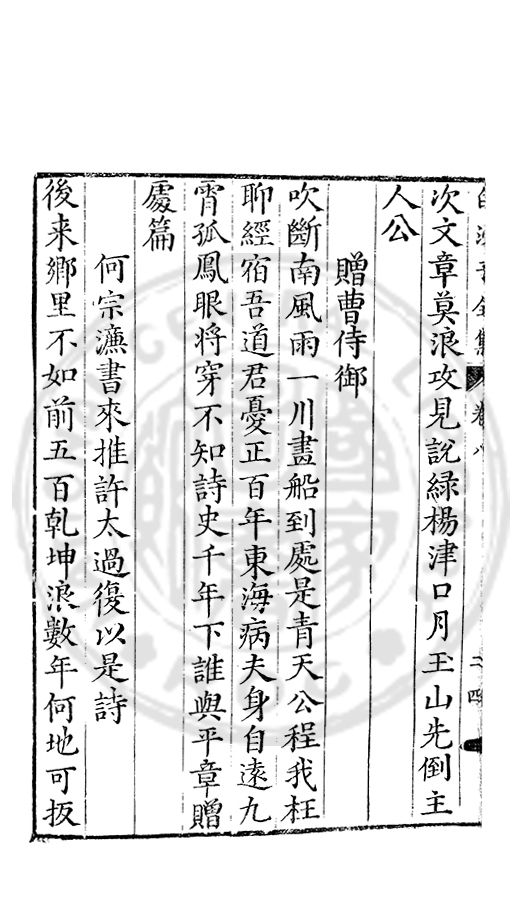 白沙子全集 卷八 二四
次文章莫浪攻見說綠楊津口月玉山先倒主
人公
贈曹侍御
吹斷南風雨一川畫船到處是青天公程我枉
聊經宿吾道君憂正百年東海病夫身自遠九
霄孤鳳眼將穿不知詩史千年下誰與平章贈
處篇
何宗濂書來推許太過復以是詩
後来鄉里不如前五百乹坤浪數年何地可扳